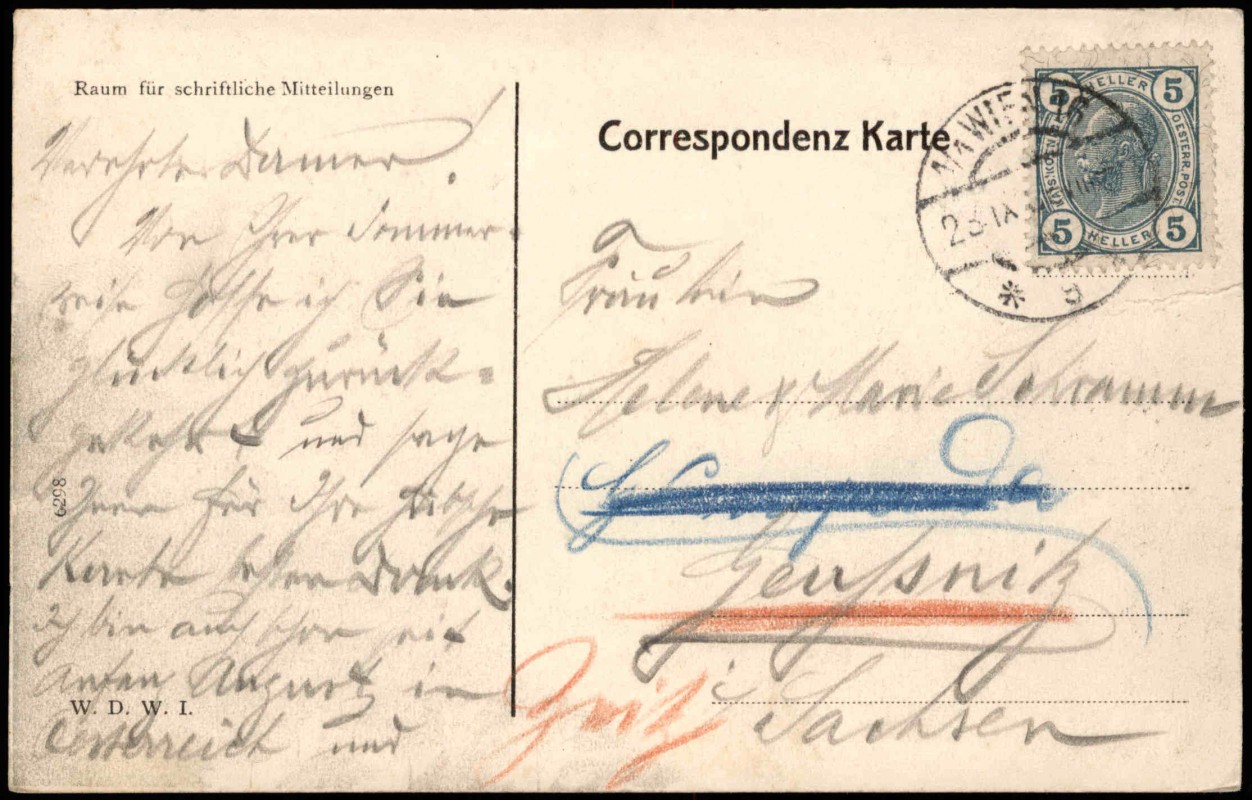 Raum für schriftliche Mitteilungen
Verehrte Damen!
Von Ihrer Sommer-
reise hoffe ich Sie
glücklich zurück-
gekehrt und sage
Ihnen für Ihre hübsche
Karte besten Dank.
Ich bin auch schon seit
Anfang August in
Oesterreich und
W. D. W. I.
6298
Correspondenz Karte
WIEN
23 IX
5 HELLER 5
KAIS. KÖN. OESTERR. POST.
5 HELLER 5
Fräulein
Helene & Marie Schramm
Geussnitz
i Sachsen